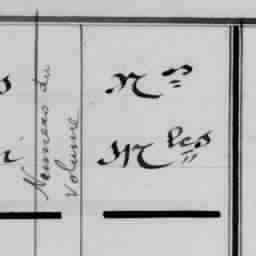 Numéros du
Volume
Nos
Mles